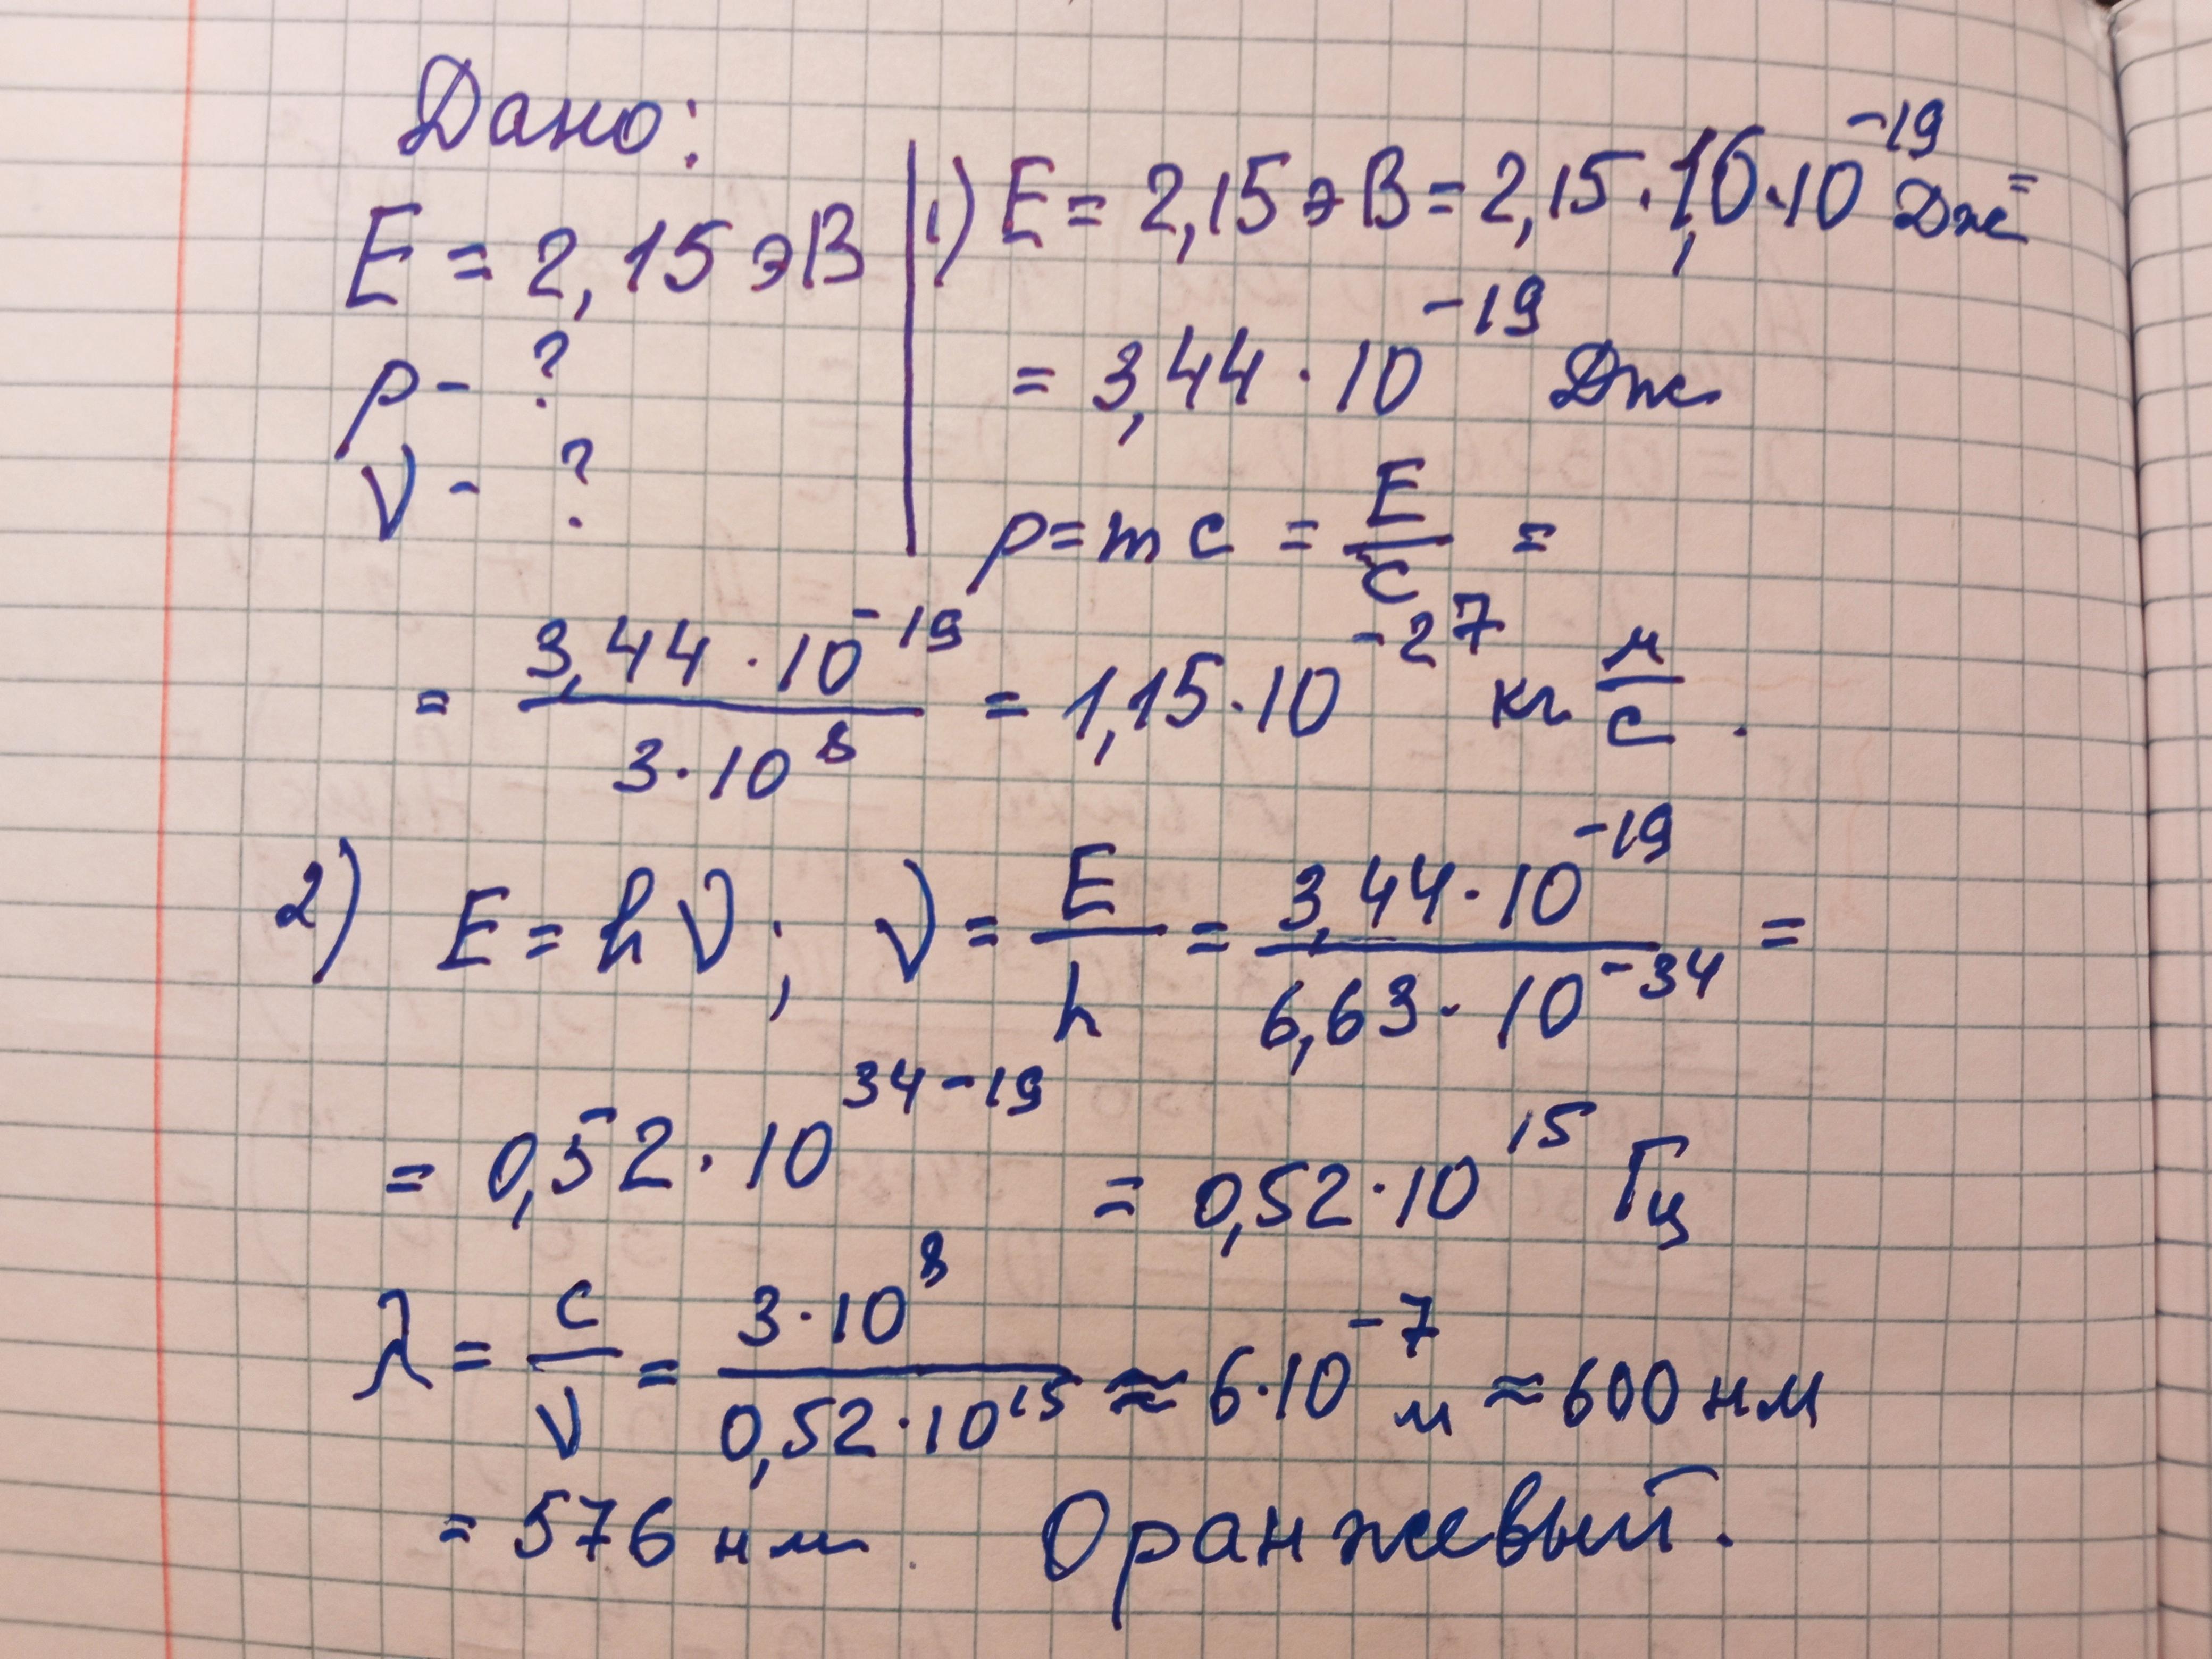 Дано:
E = 2,15 эВ
p - ?
ν - ?
1) E = 2,15 эВ = 2,15 · 1,6 · 10⁻¹⁹ Дж =
= 3,44 · 10⁻¹⁹ Дж
p = mc = E/c =
= 3,44 · 10⁻¹⁹ / 3 · 10⁸ = 1,15 · 10⁻²⁷ кг м/с .
2) E = hν ; ν = E/h = 3,44 · 10⁻¹⁹ / 6,63 · 10⁻³⁴ =
= 0,52 · 10³⁴⁻¹⁹ = 0,52 · 10¹⁵ Гц
λ = c/ν = 3 · 10⁸ / 0,52 · 10¹⁵ ≈ 6 · 10⁻⁷ м ≈ 600 нм
= 576 нм . Оранжевый.